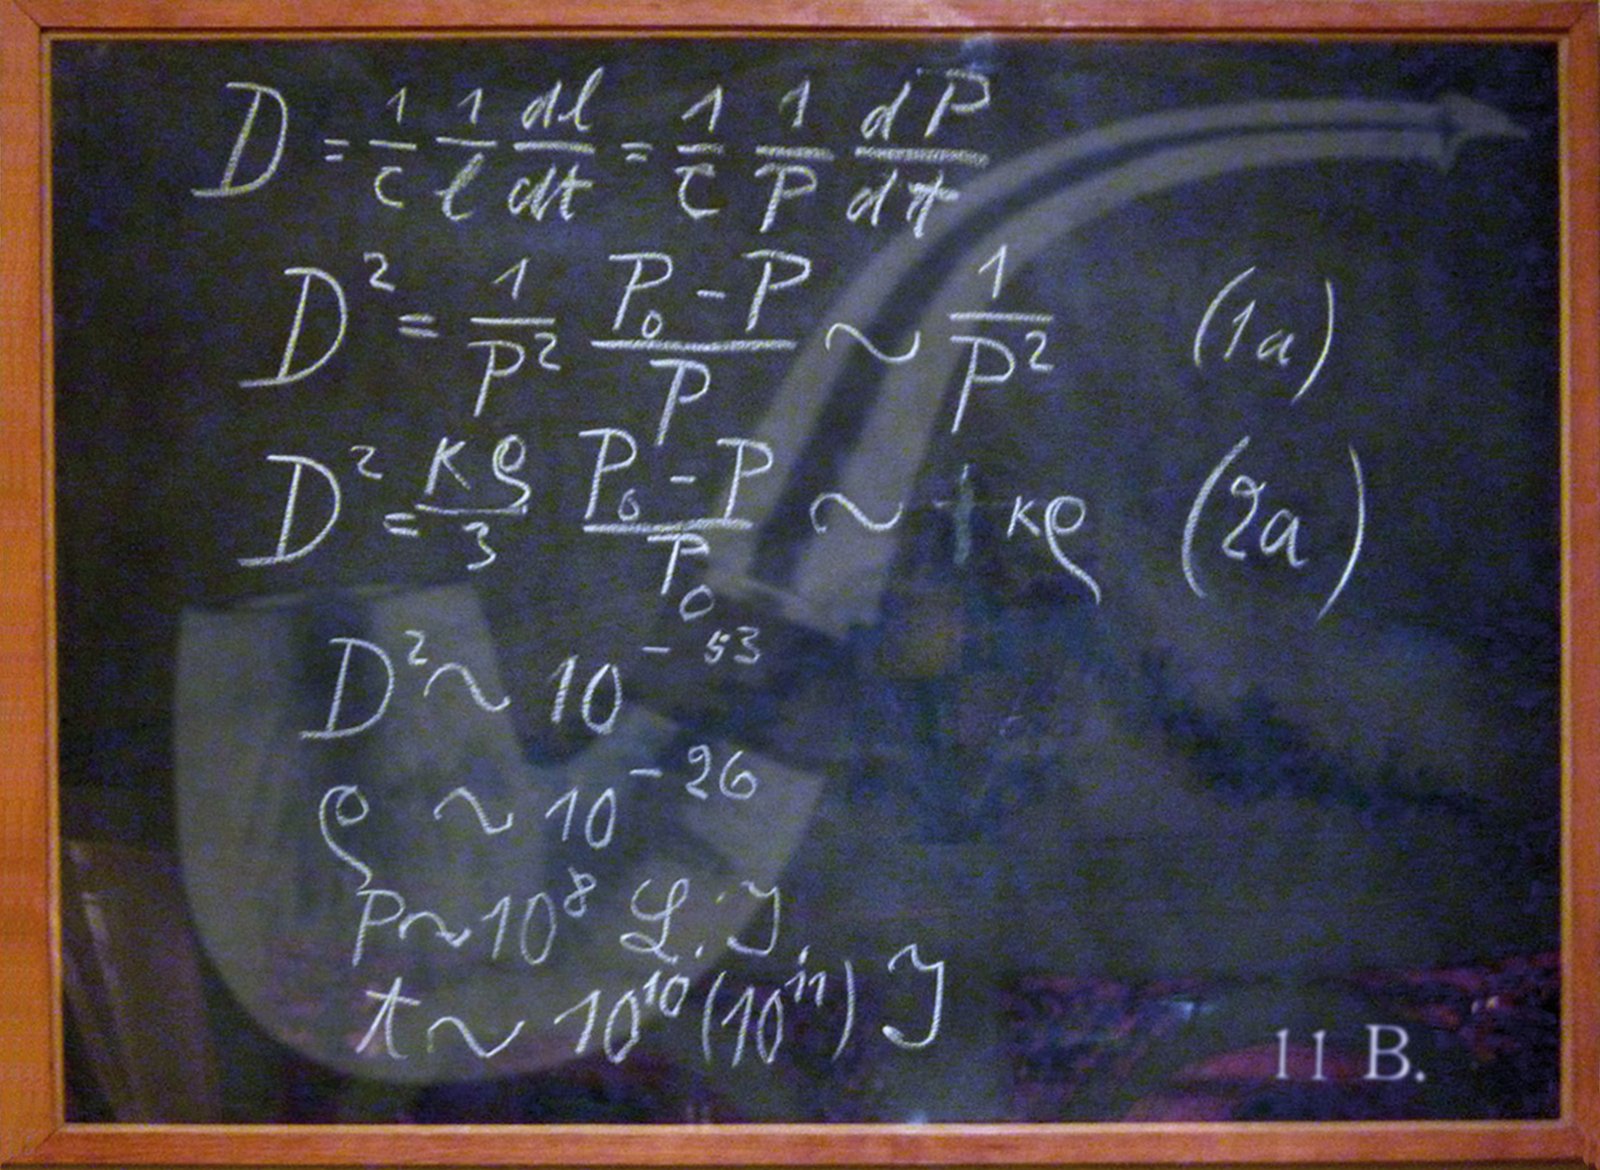 D = 1/c 1/l dl/dt = 1/c 1/P dP/dt
D² = 1/P² (P₀ - P)/P ~ 1/P² (1a)
D² = κρ/3 (P₀ - P)/P₀ ~ κρ (2a)
D² ~ 10⁻⁵³
ρ ~ 10⁻²⁶
P ~ 10⁸ L. J.
t ~ 10¹⁰ (10¹¹) J
11 B.